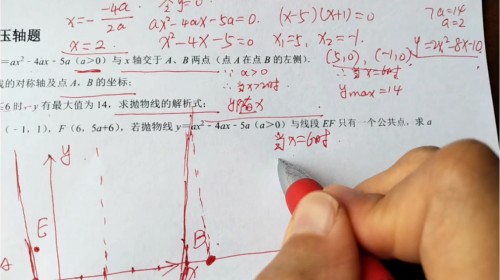 x=- -4a/2a
ax²-4ax-5a=0.
(x-5)(x+1)=0
7a=14
a=2
x=2.
x²-4x-5=0
x₁=5, x₂=-1.
玉轴题
(5,0), (-1,0)
y=2x²-8x-10.
=ax²-4ax-5a (a>0) 与 x 轴交于 A、B 两点（点 A 在点 B 的左侧）.
∵ a>0
∴当x=6时
线的对称轴及点 A、B 的坐标;
∴当x>2时
y max=14
6 时, y 有最大值为 14, 求抛物线的解析式;
(-1, 1), F (6, 5a+6), 若抛物线 y=ax²-4ax-5a (a>0) 与线段 EF 只有一个公共点, 求 a
当x=6时
y
E
A
B